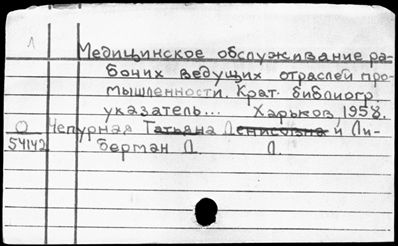 Л
Медицинское обслуживание ра-
бочих ведущих отраслей про-
мышленности. Крат. библиогр.
указатель... Харьков, 1958.
О Непурная Татьяна Денисовна и Ли-
54142 берман Л. Л.